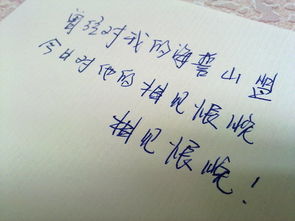 曾经对我的海誓山盟
今日对他的相见恨晚
相见恨晚！